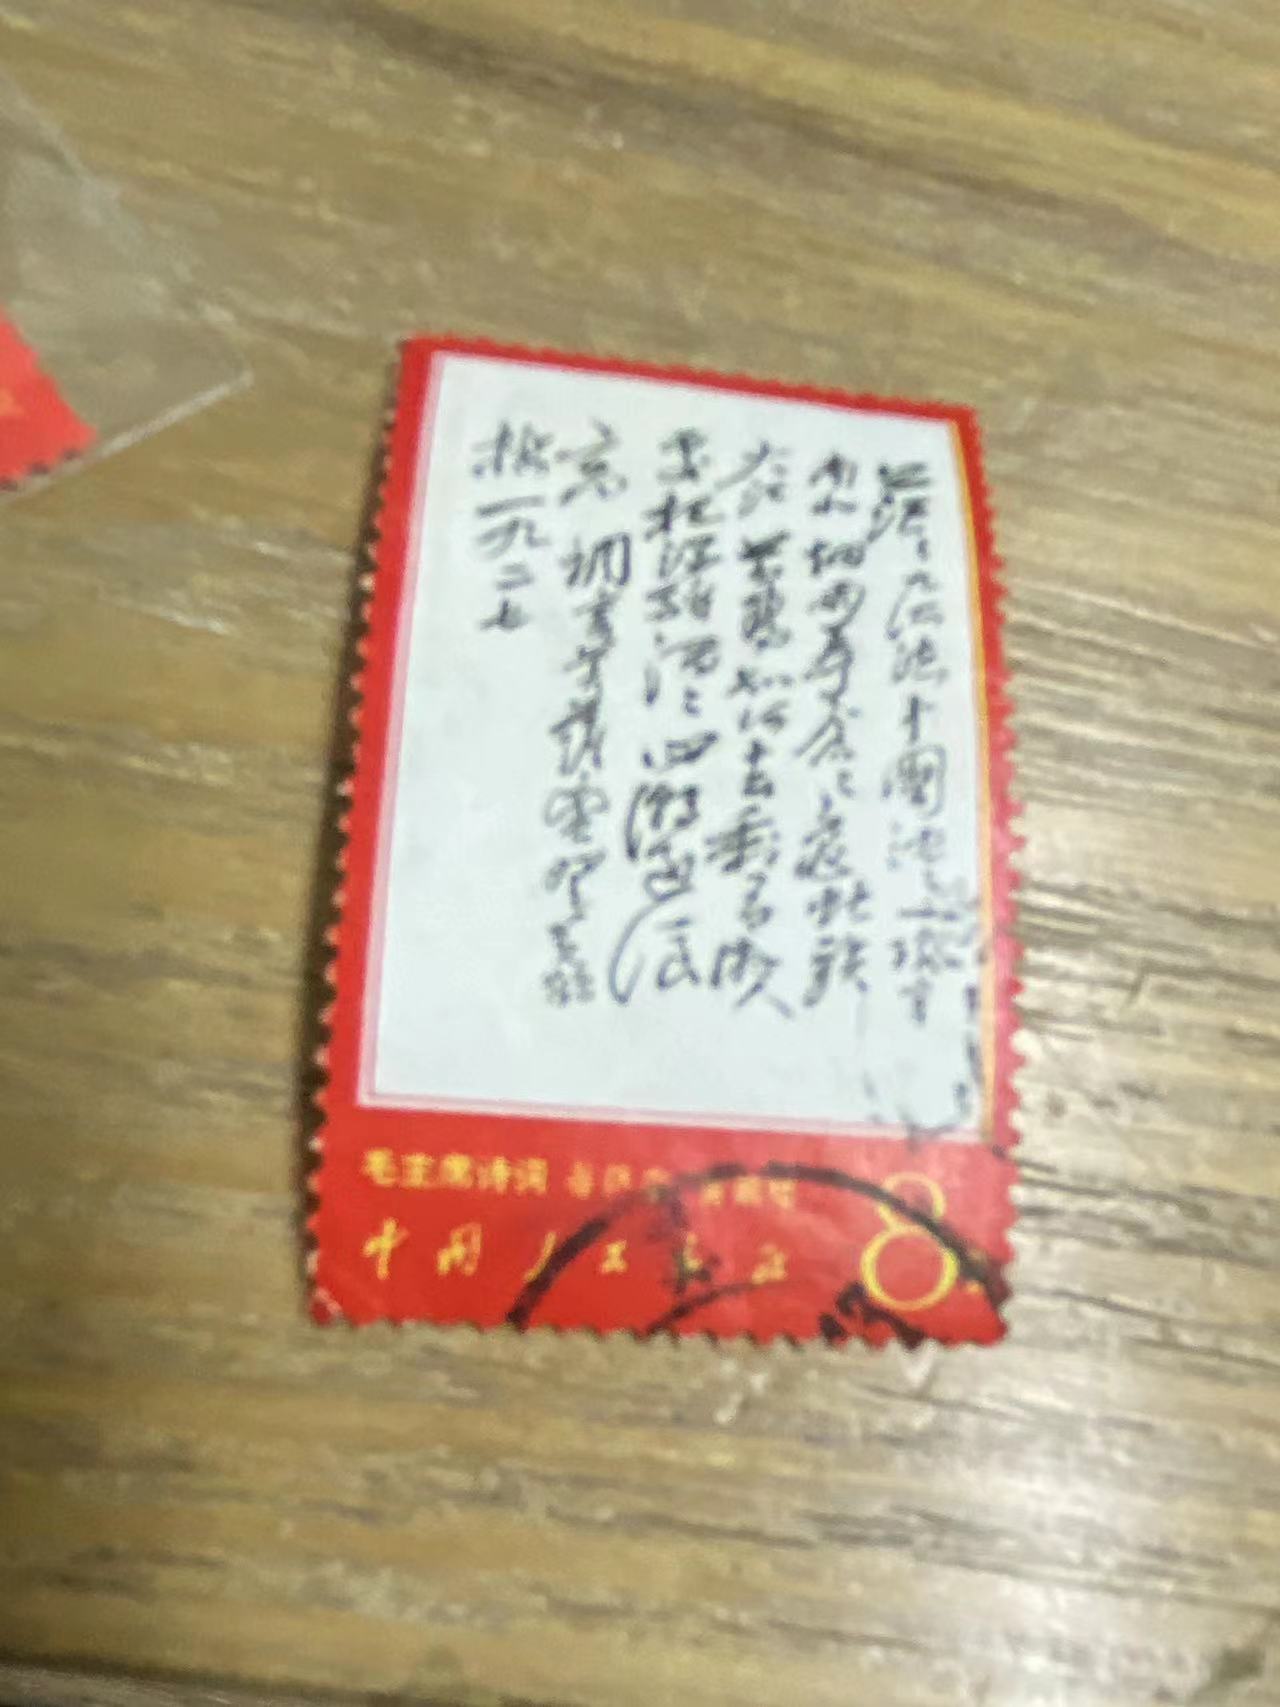 茫々九派流中國沈々一線穿
南北烟雨莽苍々龟蛇鎖
大江黄鹤知何去剩有游人
处把酒酹滔々心潮逐浪
高 调寄菩萨蛮 登黄鹤
楼一九二七
毛主席诗词 菩萨蛮 黄鹤楼
中国人民邮政 8